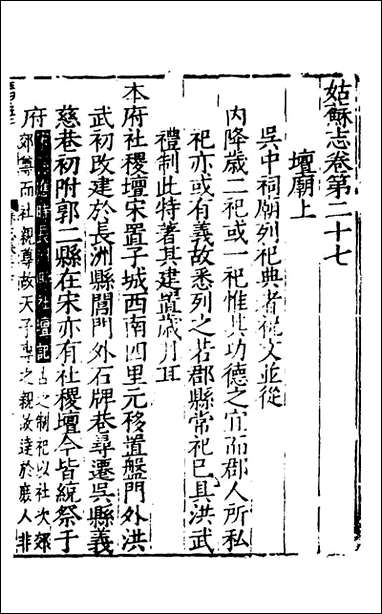 姑蘇志卷第二十七
壇廟上
吳中祠廟列祀典者從文並從
内降歲二祀或一祀惟其功德之宜而郡人所私
祀亦或有義故悉列之若郡縣常祀已具洪武
禮制此特著其建置歲月耳
本府社稷壇宋置子城西南四里元移置盤門外洪
武初改建於長洲縣閶門外石牌巷尋遷吳縣義
慈巷初附郭二縣在宋亦有社稷壇今皆統祭于
府
時長洲縣社壇記古之制祀以社次郊
郊尊而社親尊故天子專之親故達於庶人非